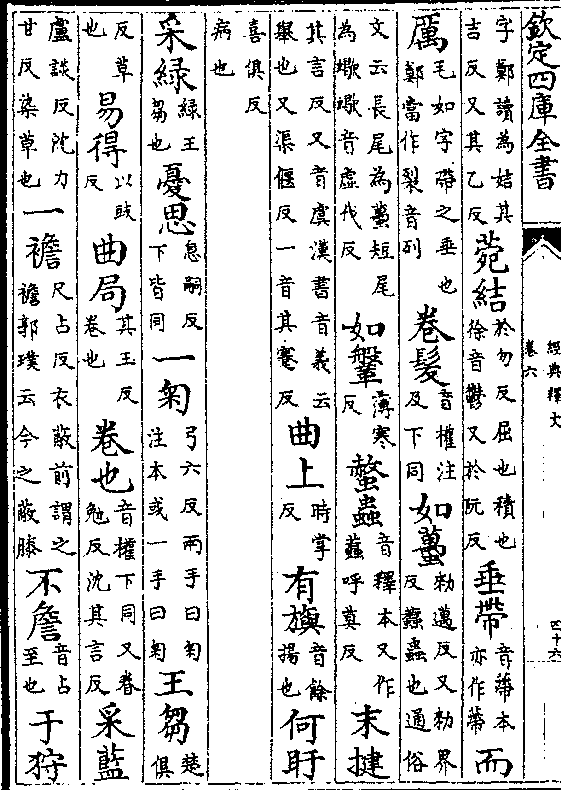 欽定四庫全書
經典釋文
卷六
四十六
字鄭讀為姞其吉反又其乙反菀結於勿反屈也積也徐音鬱又於阮反垂帶音蔕本亦作蔕而
厲毛如字帶之垂也鄭當作裂音列卷髮音權注及下同如蠆勑邁反又勑界反蠆蟲也通俗
文云長尾為蠆短尾為蠍蠍音虛伐反如鞶薄寒反螫蟲音釋本又作蠚呼莫反末揵
其言反又音虔漢書音義云舉也又渠偃反一音其蹇反曲上時掌反有旟音餘揚也何盱
喜俱反病也
采綠綠王芻也憂思息嗣反下皆同一匊弓六反兩手曰匊注本或一手曰匊王芻楚俱
反草也易得以豉反曲局其王反卷也卷也音權下同又眷勉反沈其言反采藍
盧談反沈力甘反染草也一襜尺占反衣蔽前謂之襜郭璞云今之蔽膝不詹音占至也于狩